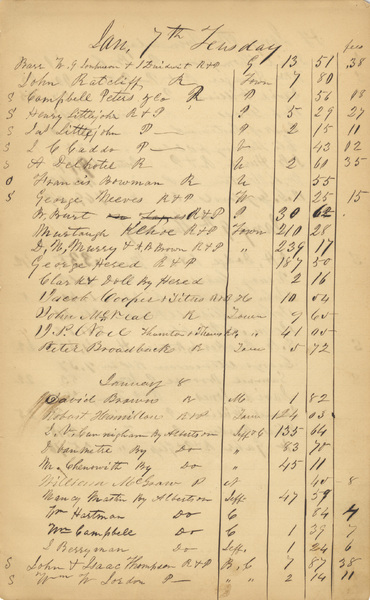 Jan, 7th Tuesday fees
Barr W. G. & R&P G 13 51 .38
John Ratcliff R Town 7 80
S Campbell Peters & Co R P 1 56 08
S Henry Littlejohn R&P P 5 29 27
S Jas Littlejohn P P 2 15 11
S L C Caddo P 43 02
S A Delhotel R 2 60 35
O Francis Bowman R 55
S George Meeves R&P 1 25 15
W. Burt R&P P 30 62
Murtaugh Kehoe R&P Town 210 28
D, W, Murry & J. B Brown R&P " 239 17
George Hered R&P 187 50
Clark & Doll By Hered 2 16
Jacob Cooper & 10 04
John McNeal R Town 9 65
Noel Thornton & " 41 05
Peter Broadback R Town 5 72
January 8
David Brown R 1 82
Robert R&P Town 124 05
Cunningham By Albertson Jeff C 135 64
By Do " 83 70
Mr. Chenowith By Do " 45 11
William McGraw P 40 8
Nancy Martin By Albertson Jeff. 47 59
Wm Hartman Do C 84 4
Wm Campbell Do C 1 39 7
J Berryman Do Jeff. 1 24 6
S John & Isaac Thompson R&P B, C 1 87 38
S Wm W Jordon P " " 2 14 11